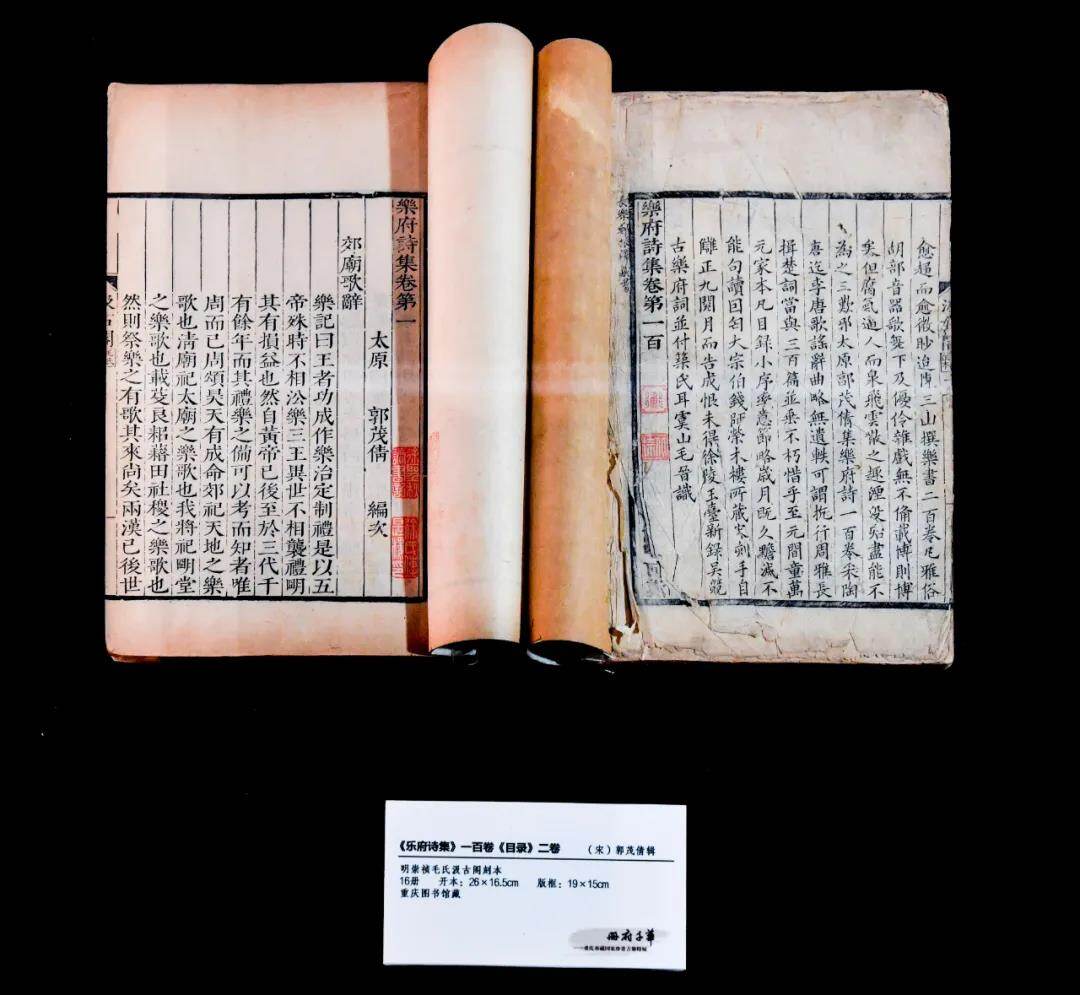 愈趨而愈微眇迨陳三山撰樂書二百卷凡雅俗
胡部音器歌舞下及優伶雜戲無不備載博則博
矣但腐氣逼人而泉飛雲散之趣湮没盡能不
為之三歎邪太原郭茂倩集樂府詩一百卷采陶
唐迄李唐歌謠辭曲略無遺軼可謂抗行周雅長
揖楚詞當與三百篇並垂不朽惜乎至元間童萬
元家本凡目録小序率意節略歲月既久不
能句讀因匄大宗伯錢師榮木樓所藏宋刻手自
讎正九閱月而告成恨未得徐陵玉臺新録吳兢
古樂府詞並付築氏耳虞山毛晉識
樂府詩集卷第一百
樂府詩集卷第一
太原 郭茂倩 編次
郊廟歌辭
樂記曰王者功成作樂治定制禮是以五
帝殊時不相沿樂三王異世不相襲禮明
其有損益也然自黄帝已後至於三代千
有餘年而其禮樂之備可以考而知者唯
周而已周頌昊天有成命郊祀天地之樂
歌也清廟祀太廟之樂歌也我將祀明堂
之樂歌也載芟良耜藉田社稷之樂歌也
然則祭樂之有歌其來尚矣兩漢已後世
《乐府诗集》一百卷《目录》二卷 （宋）郭茂倩辑
明崇祯毛氏汲古阁刻本
16册 开本：26×16.5cm 版框：19×15cm
重庆图书馆藏
册府千華